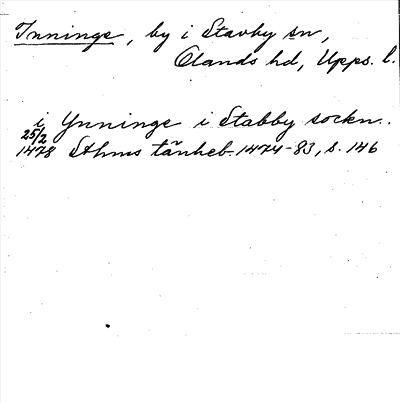 Inninge, by i Stavby sn,
Olands hd, Upps. l.
i Ynninge i Stabby sockn.
25/2
1478 Sthms tänkeb. 1474-83, s. 146